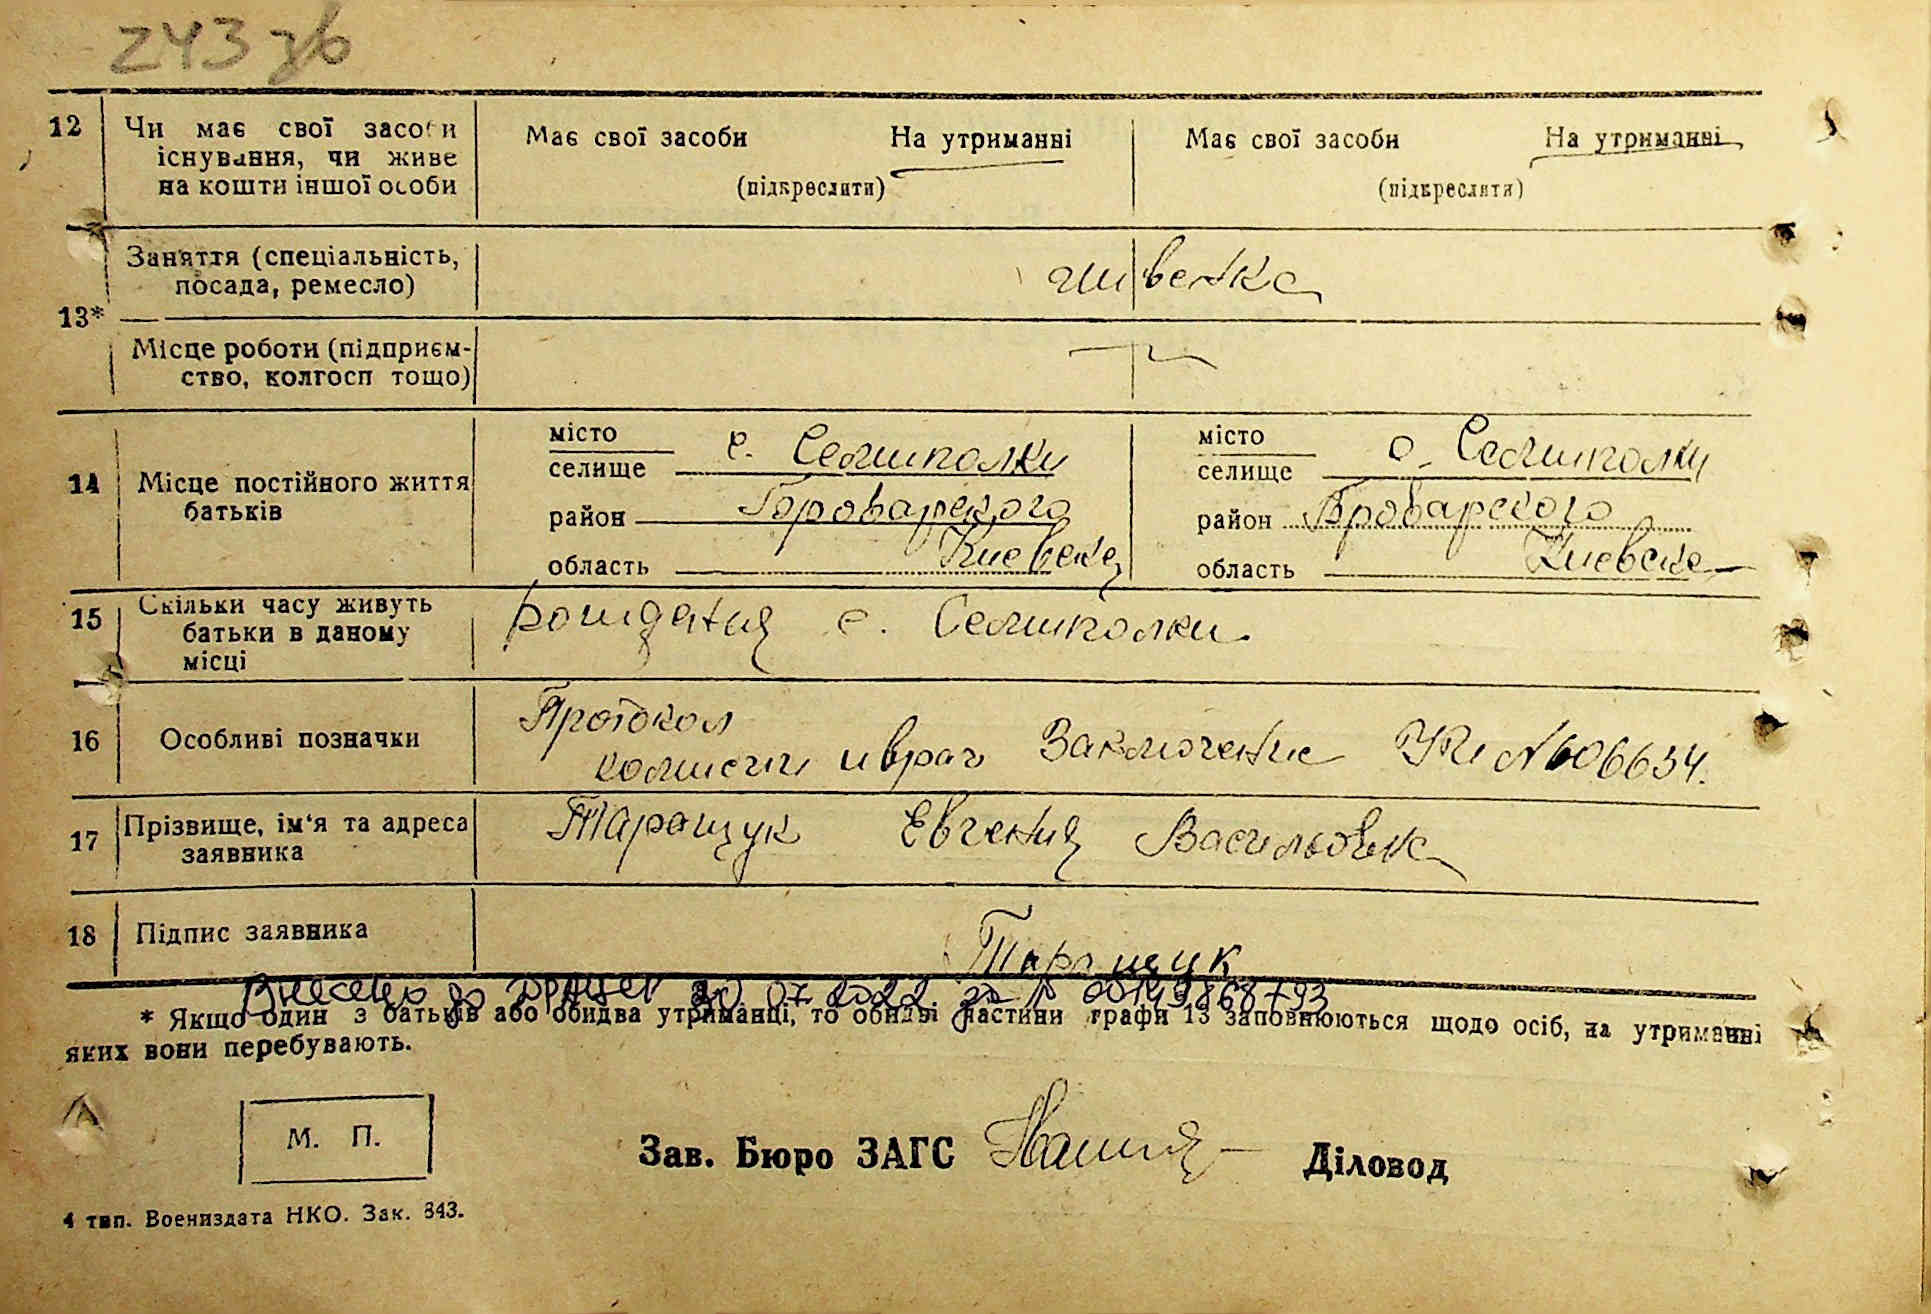 243 зв
12 Чи має свої засоби Має свої засоби На утриманні Має свої засоби На утриманні
існування, чи живе (підкреслити) (підкреслити)
на кошти іншої особи
Заняття (спеціальність,
посада, ремесло)
13*
Місце роботи (підприєм-
ство, колгосп тощо)
14 Місце постійного життя
батьків
місто
селище с. Семиполки
район Броварского
область Киевске
місто
селище с. Семиполки
район Броварского
область Киевске
15 Скільки часу живуть
батьки в даному
місці
рождения с. Семиполки
16 Особливі позначки
Протокол
комисии и врач Заключение № 606634.
17 Прізвище, ім'я та адреса
заявника
Таращук Евгения Васильовна
18 Підпис заявника Таращук
Внесено до ДРАЦСГ 20 07 2022 за № 00149868793
* Якщо один з батьків або обидва утриманці, то обидві частини графи 13 заповнюються щодо осіб, на утриманні
яких вони перебувають.
М. П.
Зав. Бюро ЗАГС Діловод
4 тип. Воениздата НКО. Зак. 843.